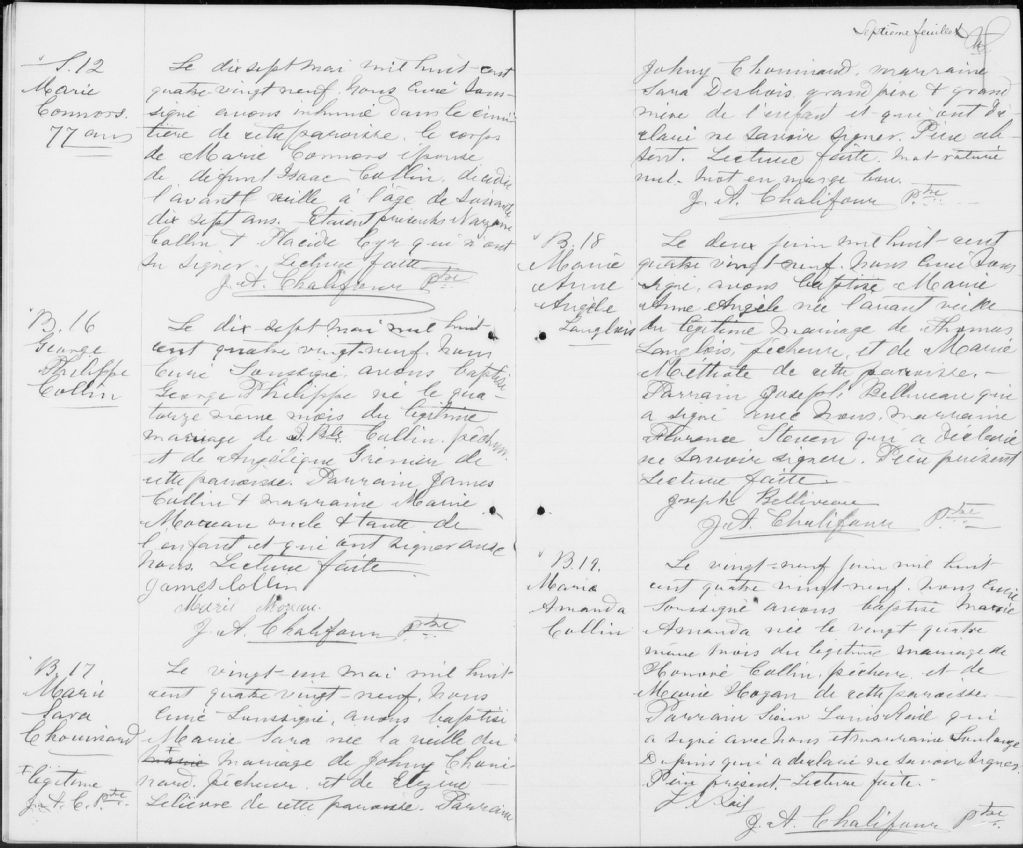 S. 12
Marie
Connors.
77 ans
Le dix sept mai mil huit cent
quatre vingt neuf, nous curé sous-
signé avons inhumé dans le cime
tière de cette paroisse, le corps
de Marie Connors épouse
de défunt Isaac Collin, décédée
l'avant veille à l'âge de soixante
dix sept ans. Etaient présents Nazaire
Collin & Placide Cyr qui n'ont
su signer. Lecture faite
J. A. Chalifour Ptre
B. 16
George
Philippe
Collin
Le dix sept mai mil huit
cent quatre vingt-neuf, nous
Curé Soussigné avons baptisé
George Philippe né le qua
torze même mois du légitime
mariage de J. Bte Collin, pêcheur
et de Angélique Grenier de
cette paroisse. Parrain James
Collin & marraine Marie
Moreau oncle & tante de
l'enfant et qui ont signer avec
nous. Lecture faite
James Collin
Marie Moreau
J. A. Chalifour Ptre
B. 17
Marie
Sara
Chouinard
légitime
J. A. C. Ptre
Le vingt-un mai mil huit-
cent quatre vingt neuf, nous
curé soussigné, avons baptisé
Marie Sara née la veille du
mariage de Johny Choui
nard, pêcheur, et de
Lelièvre de cette paroisse. Parrain
Septième feuillet
Johny Chouinard, marraine
Sara Desbois grand père & grand
mère de l'enfant et qui ont dé
claré ne savoir signer. Père ab-
sent. Lecture faite. mot raturé
nul. Mot en marge bon.
J. A. Chalifour Ptre
B. 18
Marie
Anne
Angèle
Langlois
Le deux juin mil huit-cent
quatre vingt-neuf, nous Curé sous
signé, avons baptisé Marie
Anne Angèle née l'avant veille
du légitime mariage de Thomas
Langlois, pêcheur, et de Marie
Méthote de cette paroisse.-
Parrain Joseph Belliveau qui
a signé avec nous, marraine
Florence Steven qui a déclaré
ne savoir signer. Père présent
Lecture faite
Joseph Belliveau
J. A. Chalifour Ptre
B. 19.
Marie
Amanda
Collin
Le vingt-neuf juin mil huit
cent quatre vingt-neuf, nous curé
soussigné avons baptisé Marie
Amanda née le vingt quatre
même mois du légitime mariage de
Honoré Collin, pêcheur, et de
Marie Hogan de cette paroisse.-
Parrain Sieur Louis qui
a signé avec nous et marraine Solange
Dupuis qui a déclaré ne savoir signer.
Père présent. Lecture faite.
J. A. Chalifour Ptre